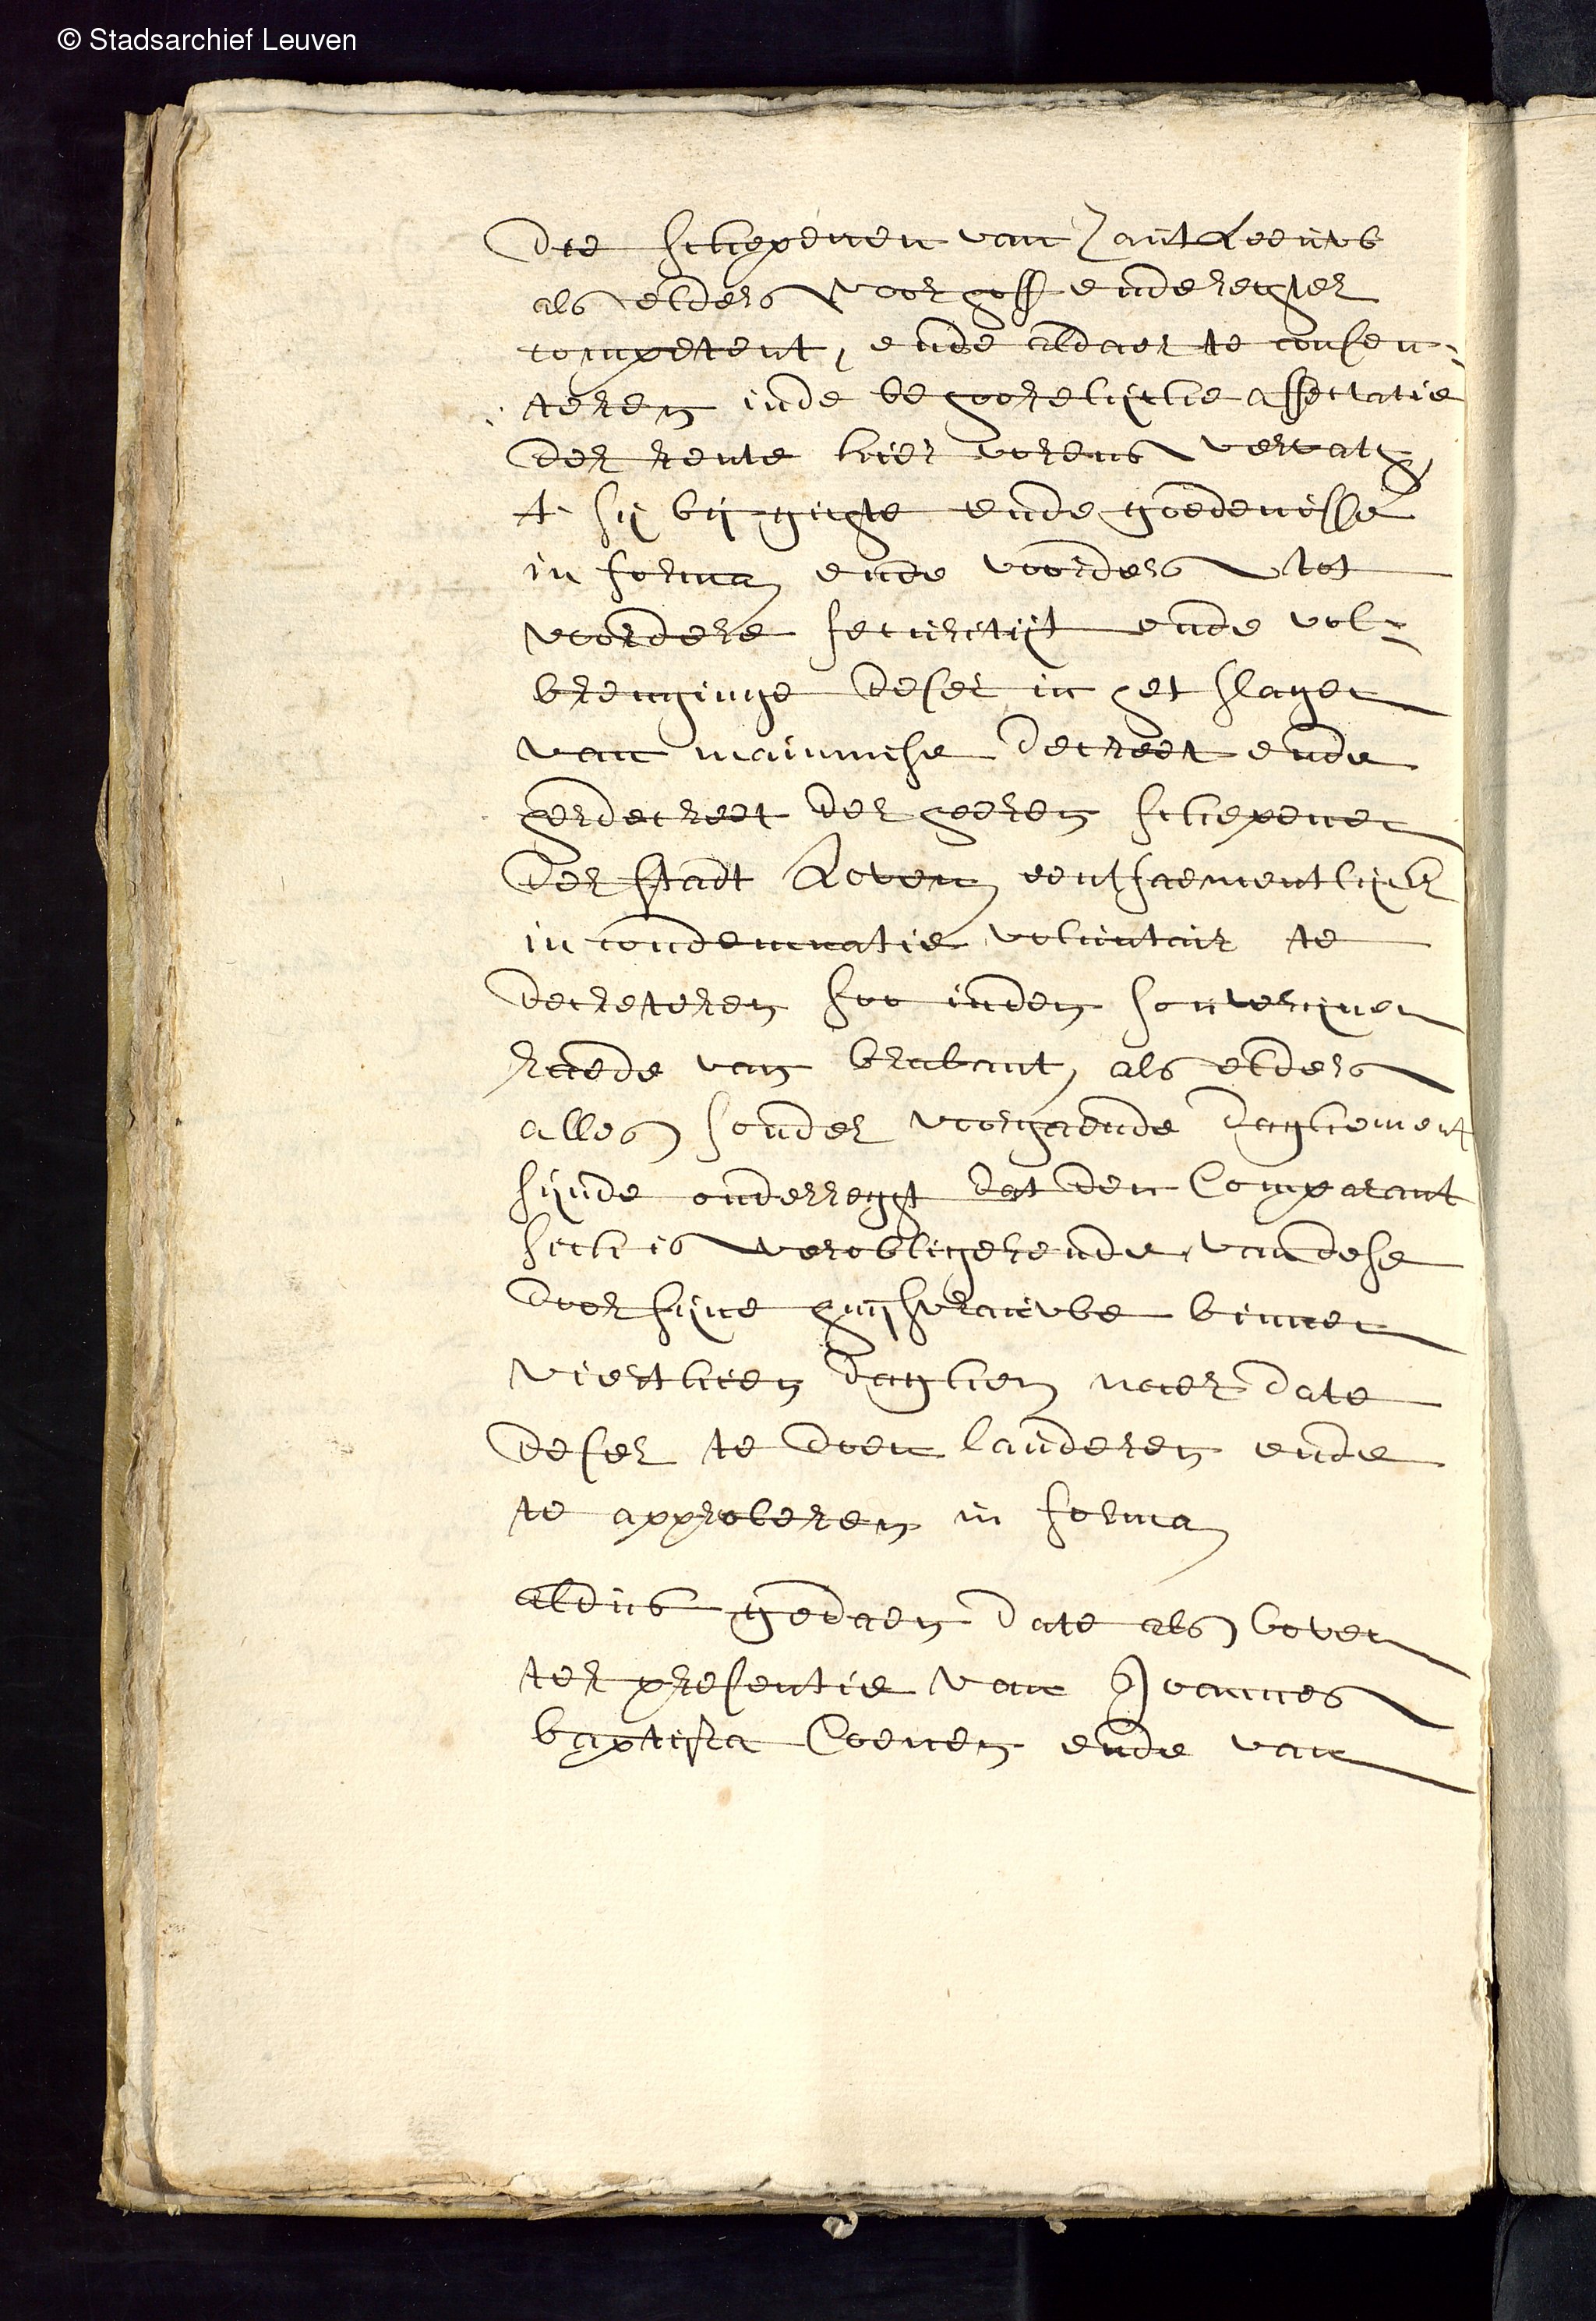 © Stadsarchief Leuven
die schepenen van Zautleeuw
als elders voor hoff ende rechter
competent, ende aldaer te consen-
teren inde behoorelijcke affectatie
der rente hier vorens vervat
t sij bij gichte ende goedenisse
in forma ende voorders tot
voordere securitijt ende vol-
brenginge deser in het slagen
van mainmise decreet ende
herdecreet der heeren schepenen
der stadt Loven eentsaementlijck
in condemnatie voluntair te
decreteren soo inden souverynen
raede van brabant, als elders
alles sonder voorgaende daghement
sijnde onderreght dat den Comparant
sich is verobligerende van dese
door sijne huijsvrauwe binnen
vierthien daghen naer date
deser te doen lauderen ende
te approberen in forma
aldus gedaen date als boven
ter presentie van Joannes
baptista Coenen ende van